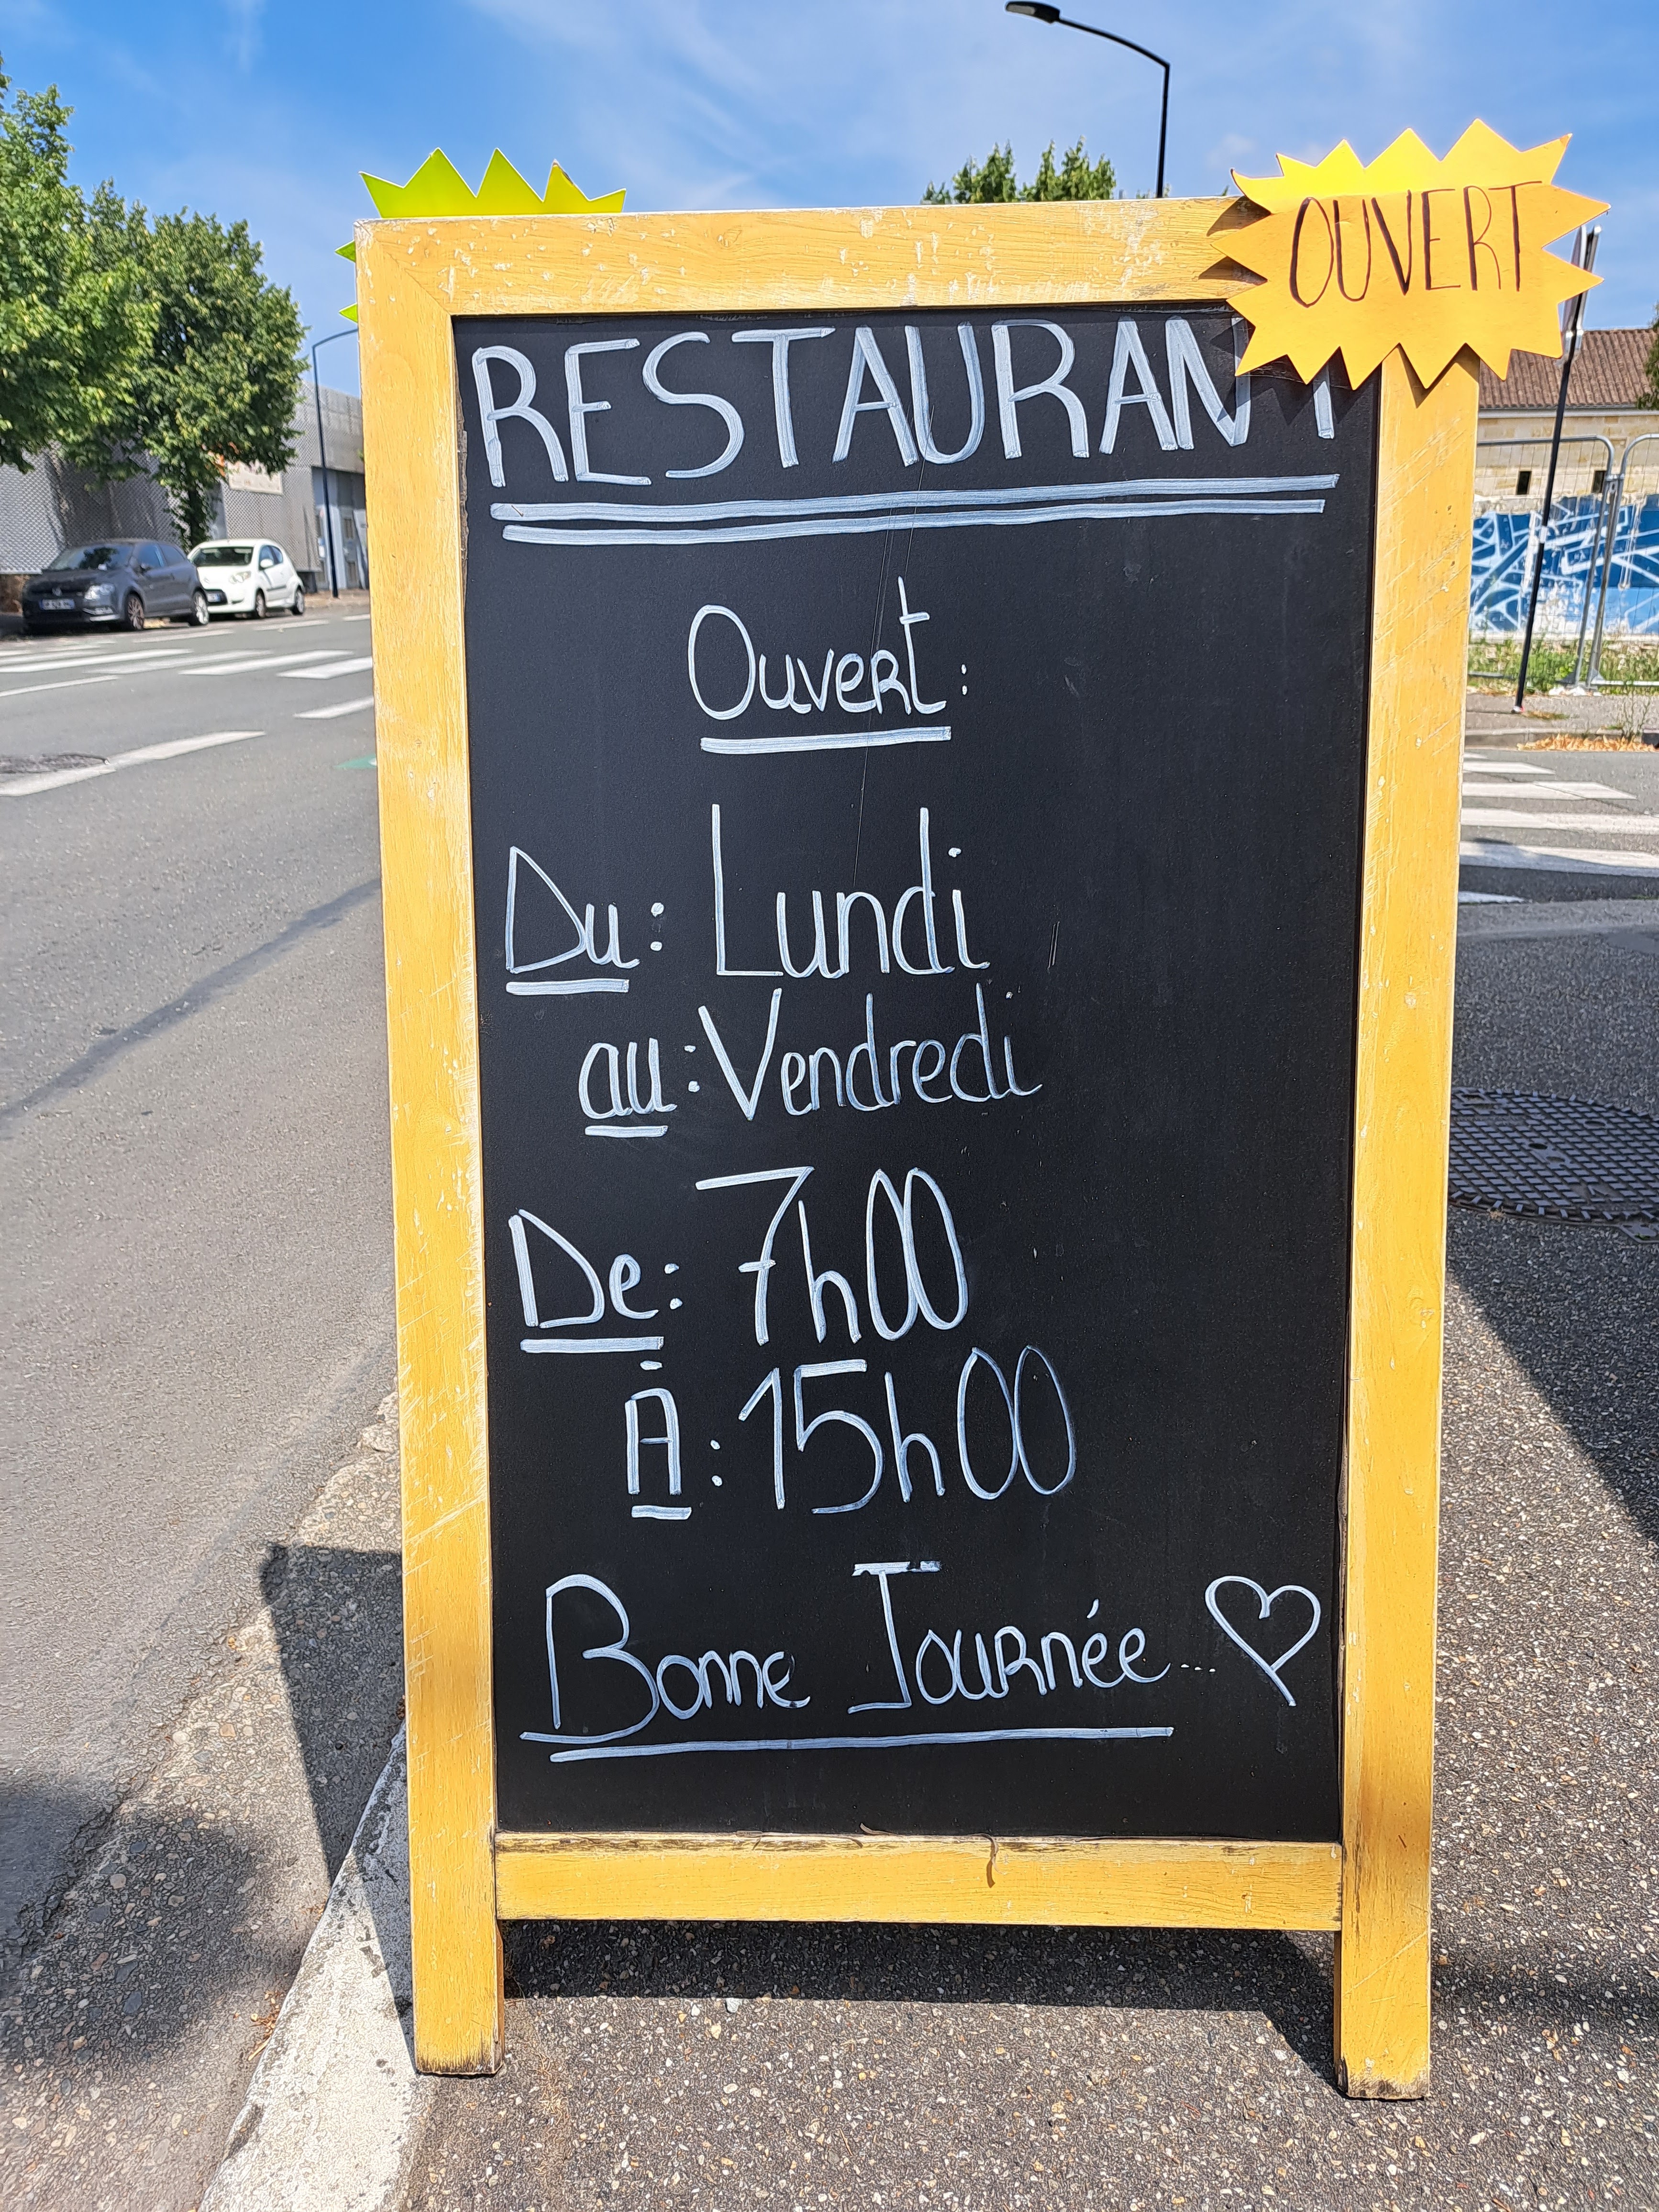 OUVERT
RESTAURANT
Ouvert :
Du : Lundi
au : Vendredi
De : 7h00
À : 15h00
Bonne Journée...